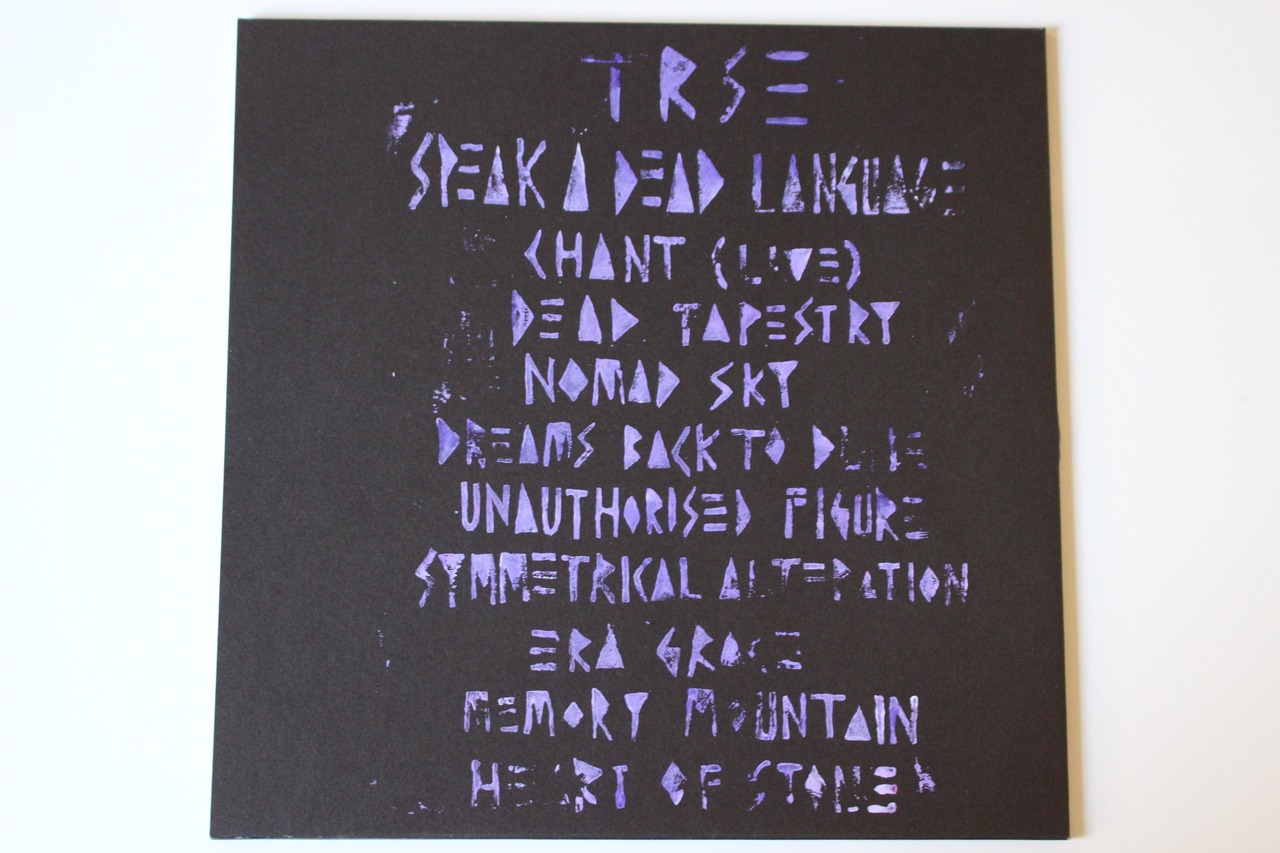 TRSE
SPEAK A DEAD LANGUAGE
CHANT (LIVE)
DEAD TAPESTRY
NOMAD SKY
DREAMS BACK TO
UNAUTHORISED FIGURE
SYMMETRICAL ALTERATION
ERA GRACE
MEMORY MOUNTAIN
HEART OF STONE